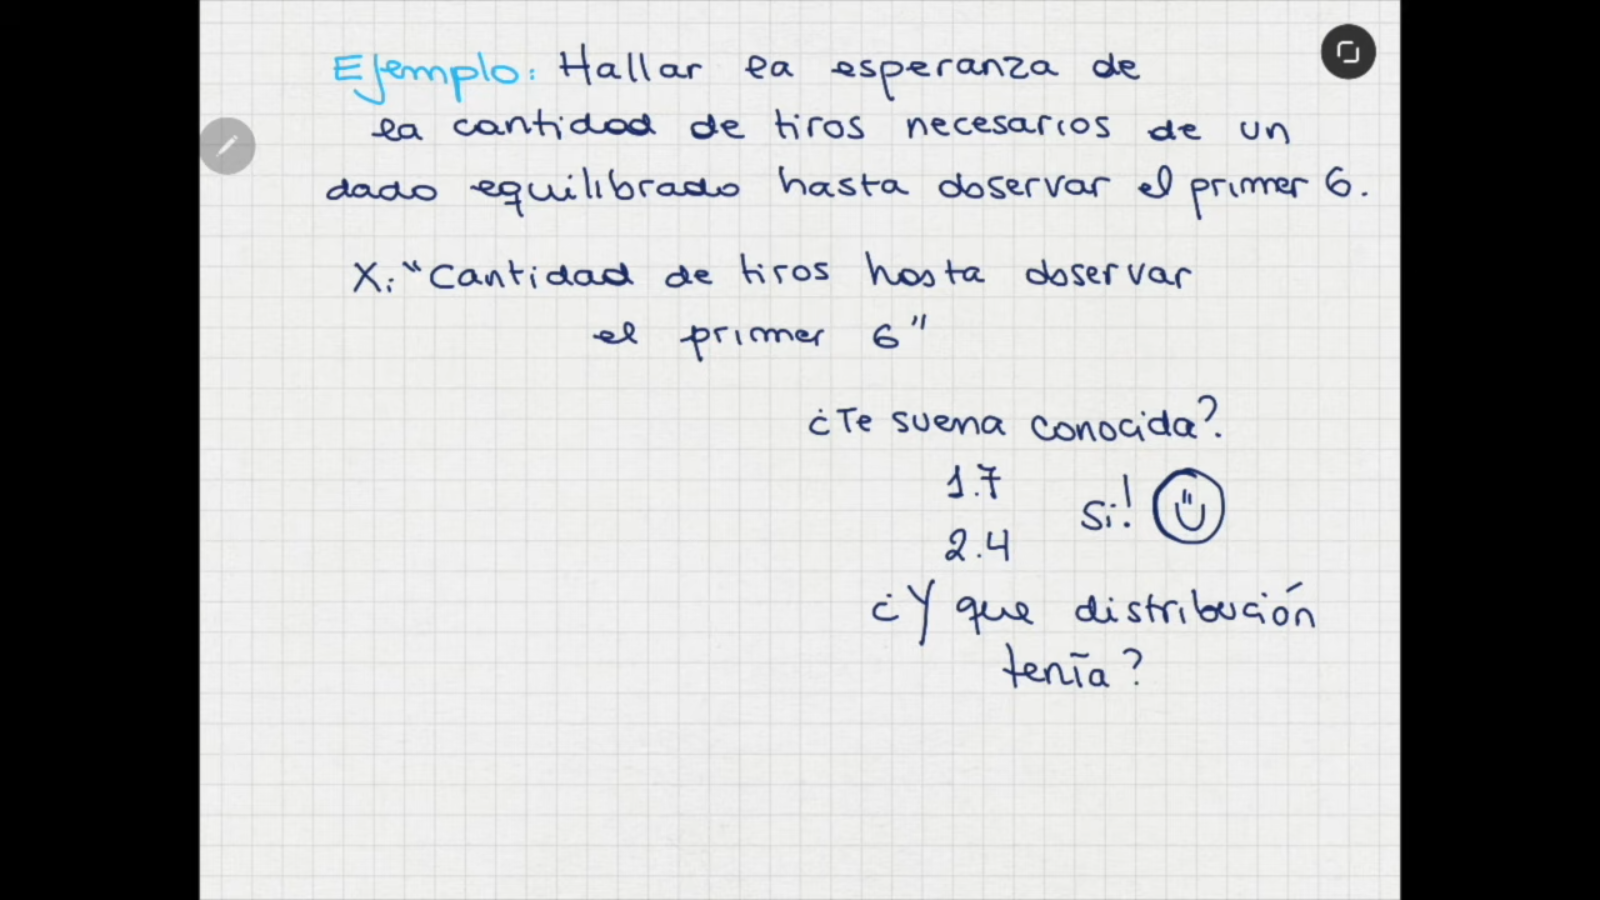 Ejemplo: Hallar la esperanza de
la cantidad de tiros necesarios de un
dado equilibrado hasta observar el primer 6.
X: "Cantidad de tiros hasta observar
el primer 6"
¿Te suena conocida?
1.7
Si!
2.4
¿Y que distribución
tenía?